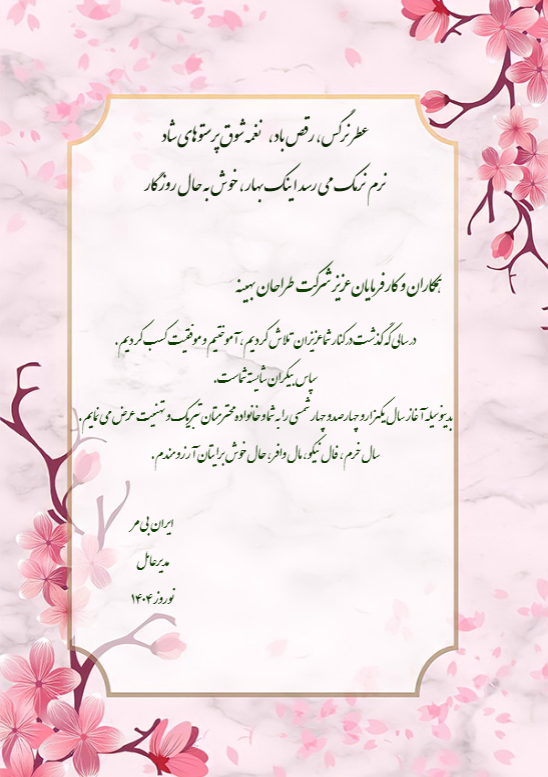 عطر نرگس، رقص باد، نغمه شوق پرستوهای شاد
نرم نرمک می رسد اینک بهار، خوش به حال روزگار
همکاران و کارفرمایان عزیز شرکت طراحان بهینه
در سالی که گذشت در کنار شما عزیزان تلاش کردیم، آموختیم و موفقیت کسب کردیم.
سپاس بیکران شایسته شماست.
بدینوسیله آغاز سال یکهزار و چهارصد و چهار شمسی را به شما و خانواده محترمتان تبریک و تهنیت عرض می نمایم.
سال خرم، فال نیکو، مال وافر، حال خوش برایتان آرزومندم.
ایران بی مر
مدیرعامل
نوروز ۱۴۰۴